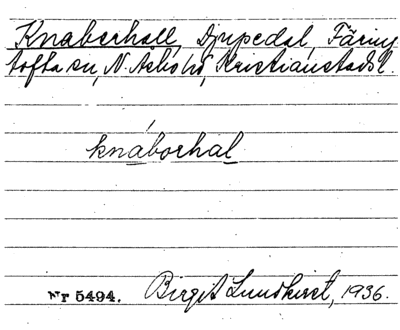 Knaberhall, Djupedal, Färing
tofta sn, N. Åsbo hd, Kristianstads l.
knáborhal
Nr 5494. Birgit Lundkvist, 1936.